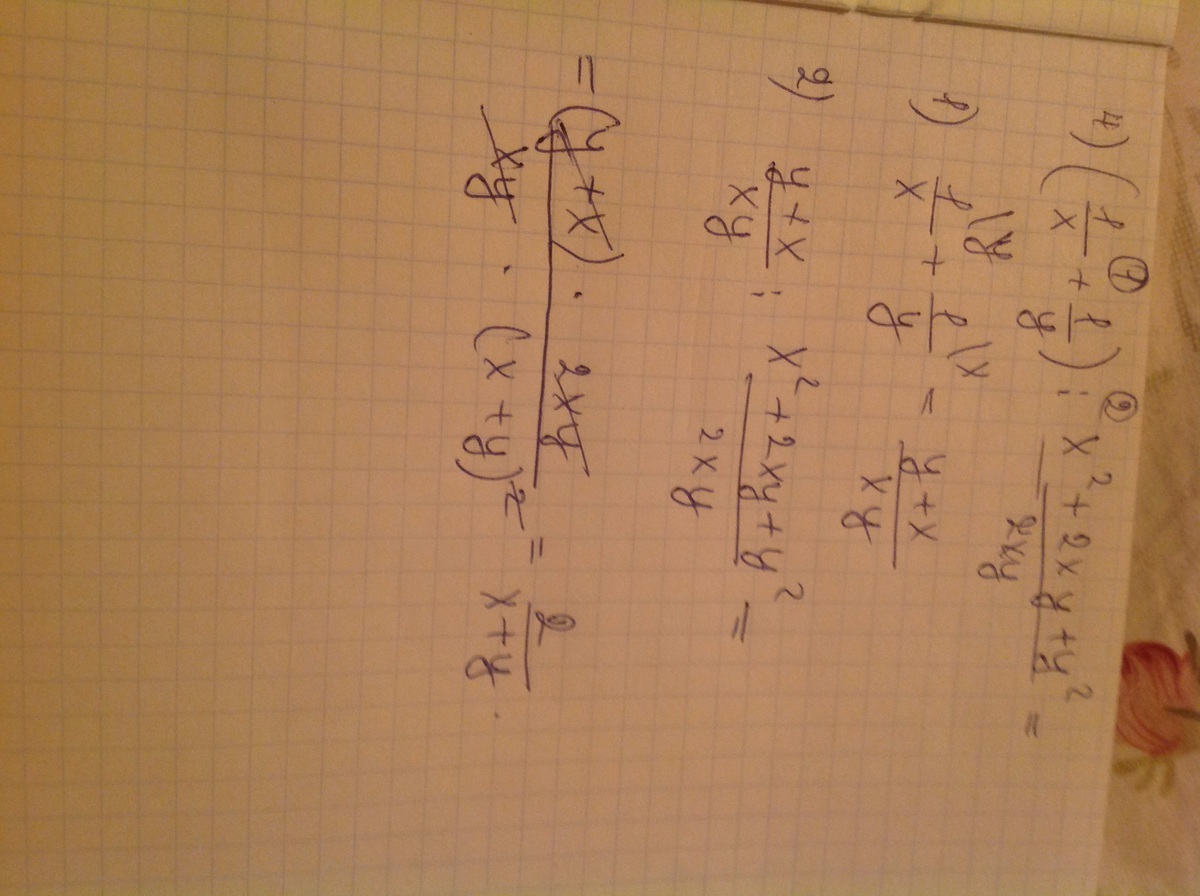 4) (1/x + 1/y) : (x² + 2xy + y²)/(2xy) =
① ②
1) 1/x \y + 1/y \x = (y + x)/(xy)
2) (y + x)/(xy) : (x² + 2xy + y²)/(2xy) =
= ((y + x) · 2xy)/(xy · (x + y)²) = 2/(x + y).